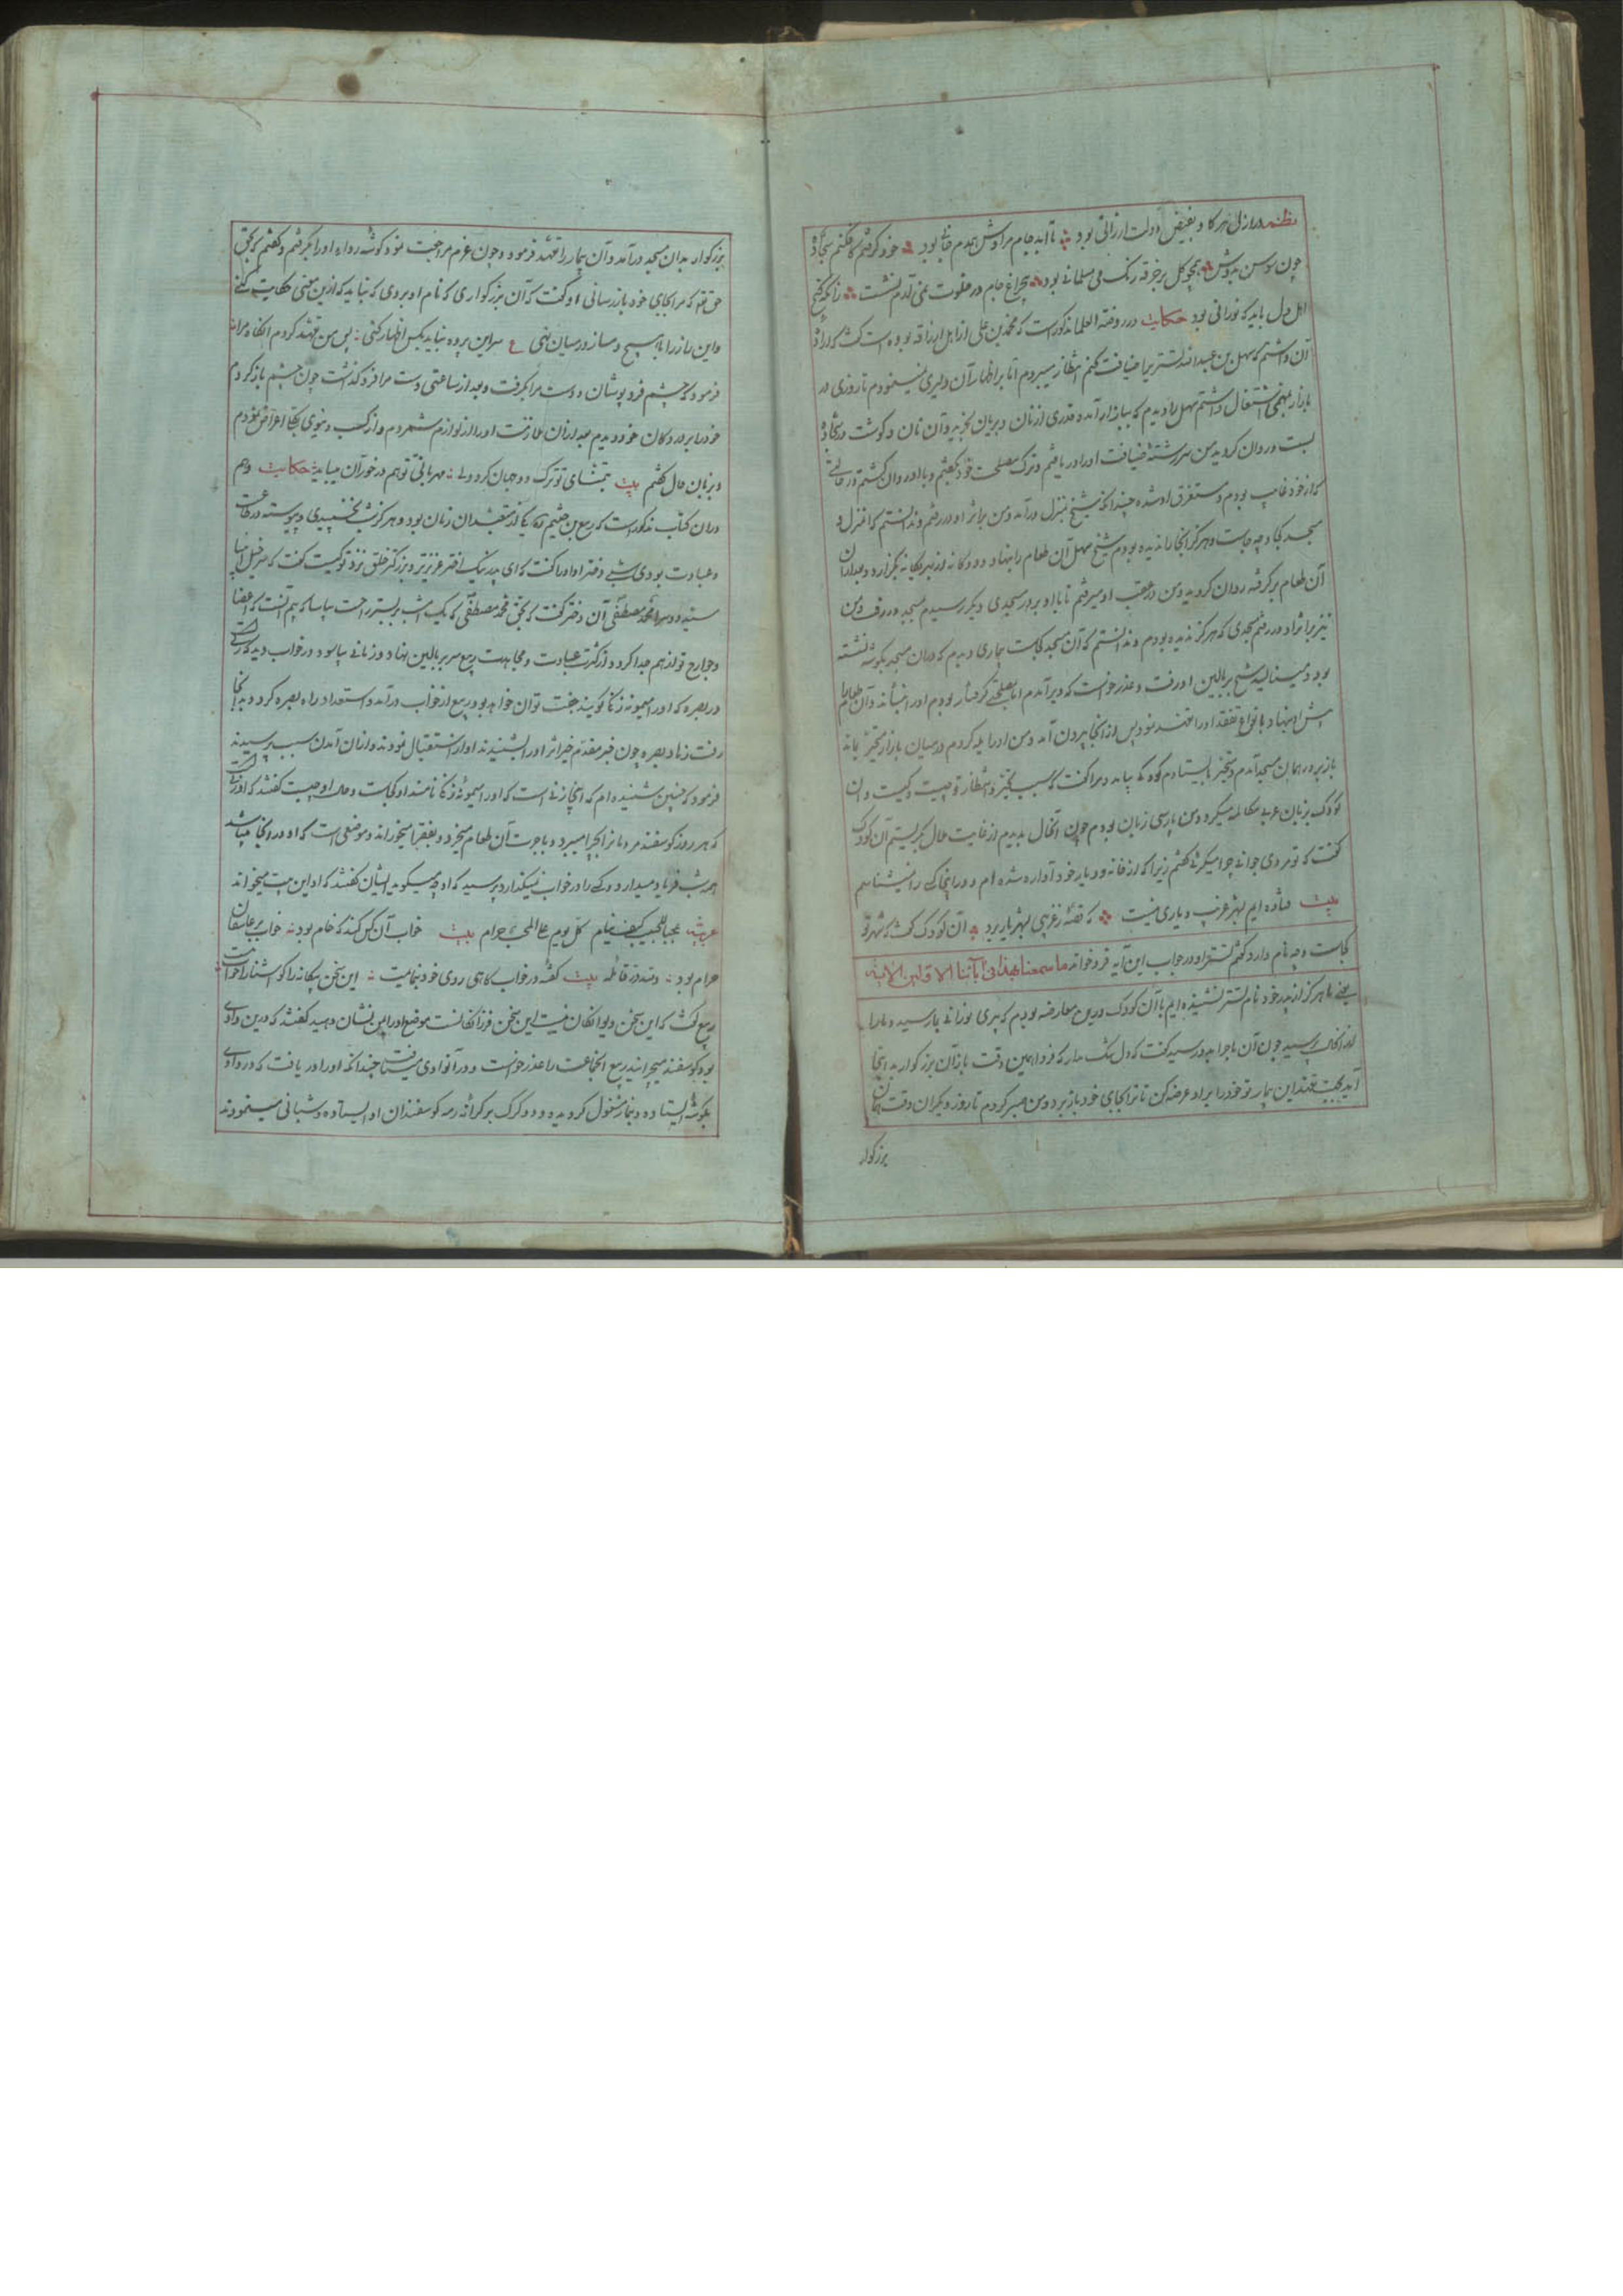 نظم در ازل هر کا و بفیض دولت ارزانی بود تا ابد جام مرادش همدم جانی بود خود گرفتم کافکنم سجاده
چون سوسن بدوش همچو گل بر خرقه رنگ می مسلمانی بود بی چراغ جام در خلوت نمی آرم نشست زانکه کنج
اهل دل باید که نورانی بود حکایت در روضة العلما مذکورست که محمد بن علی از اهل بوده است گفت که اراده
آن داشتم که سهل بن عبدالله تستری را ضیافت کنم انتظار میبردم اما بر اظهار آن دلیری نمینمودم تا روزی در
بازار بمهمی اشتغال داشتم سهل را دیدم که ببازار آمد و قدری از نان و بریان بخرید و آن نان و گوشت در سجاده
بست و روان گردید من سررشته ضیافت او را دریافتم و ترک مصلحت خود بگفتم و با او روان گشتم در حالتی
که از خود غایب بودم و مستغرق او شده چندانکه شیخ بمنزل درآمد و من بر اثر او در رفتم و ندانستم که منزل و
مسجد کجا و چه جاست و هرگز آنجا را ندیده بودم شیخ سهل آن طعام را بنهاد و دوگانه از بهر یگانه بگزارد و بعد از آن
آن طعام برگرفته روان گردید و من در عقب او میرفتم تا با او بر در مسجدی دیگر رسیدم مسجد در رفت و من
نیز بر اثر او در رفتم مسجدی که هرگز ندیده بودم و ندانستم که آن مسجد کجاست بیماری دیدم که در آن مسجد بگوشه نشسته
بود و مینالید شیخ ببالین او رفت و عذر خواست که دیر آمدم اما بمصلحتی گرفتار بودم او را بنشاند و آن طعام را
پیش او بنهاد بانواع تفقد او را تعهد نمود پس از آنجا بیرون آمد و من او را یله کردم در میان بازار متحیر بماند
باز بر در همان مسجد آمدم و متحیر بایستادم کودکی بیامد و مرا گفت که سبب تحیر و انتظار تو چیست و کیست و آن
کودک بزبان عربی مکالمه میکرد و من پارسی زبان بودم چون آنحال بدیدم از غایت حال بگریستم آن کودک
گفت که تو مردی جوانی چرا میگرئی گفتم زیرا که از خانه و دیار خود آواره شده ام و در اینجا کسی را نمیشناسم
بیت فتاده ایم بشهر غریب و یاری نیست که قصهٔ ز غریبی بشهریار برد آن کودک گفت که شهر تو
کجاست و چه نام دارد گفتم تستر او در جواب این آیه فرو خواند ما سمعنا بهذا فی آبائنا الاولین الآیه
یعنی ما هرگز از پدر خود نام تستر نشنیده ایم با آن کودک درین معارضه بودم که پیری نورانی بما رسید و ما را
از آنحال پرسید چون آن ماجرا بدو رسید گفت که دل تنگ مدار که فردا همین وقت باز آن بزرگوار بد اینجا
آید بجهت تعهد این بیمار تو خود را برو عرضه کن تا ترا بجای خود باز برد و من صبر کردم تا روز دیگر آن وقت همان
بزرگوار
بزرگوار بدان مسجد درآمد و آن بیمار را تعهد فرمود و چون عزم مراجعت نمود گوشه رداء او را بگرفتم و گفتم که بحق
حق تعالی که مرا بجای خود باز رسانی او گفت که آن بزرگواری که نام او بردی که نباید که ازین معنی حکایت کنی
و این راز را با هیچ دمساز در میان نهی ع سر این پرده نباید بکس اظهار کنی پس من تعهد کردم آنگاه مرا
فرمود که چشم فرو پوشان و دست مرا بگرفت و بعد از ساعتی دست مرا فرو گذاشت چون چشم باز کردم
خود را بر در دکان خود دیدم بعد از آن ملازمت او را از لوازم شمردم و از کسب دنیوی بکلی اعراض نمودم
و بزبان حال گفتم بیت بتمنای تو ترک دو جهان کرد ولی مهربانی تو هم در خور آن میباید حکایت و هم
در آن کتاب مذکورست که ربیع بن خثیم یکی از متعبدان زمان بود و هرگز شب نخسپیدی و پیوسته در طاعت
و عبادت بودی شبی دختر او او را گفت که ای پدر نیک اختر عزیزتر و بزرگتر خلق نزد تو کیست گفت که سرخیل انبیا
سید دو سرا محمد مصطفی آن دختر گفت که بحق محمد مصطفی که یک امشب بر بستر راحت بیاسا که بیم آنست که اعضا
و جوارح تو از هم جدا گردد از کثرت عبادت و مجاهدت ربیع سر ببالین نهاد و زمانی بیاسود در خواب دید که زنی است
در بصره که او را میمونه زنگا گویند جفت تو آن خواهد بود ربیع از خواب درآمد و استعداد راه بصره کرد و بدانجا
رفت زهاد بصره چون خبر مقدم خیر اثر او را شنیدند او را استقبال نمودند و از آن آمدن سبب پرسیدند
فرمود که چنین شنیده ام که اینجا زنی است که او را میمونه زنگا نامند او کجاست و حال او چیست گفتند که او زنی است
که هر روز گوسفند مردمانرا بچرا میبرد و با جرت آن طعام میخرد و بفقرا میخوراند و موضعی است که او در آنجا میباشد
همه شب فریاد میدارد و کسی را در خواب نمیگذارد پرسید که او چه میگوید ایشان گفتند که او این بیت میخواند
عربیة عجبا للمحب کیف ینام کل نوم علی المحب حرام بیت خواب آن کس کند که خام بود خواب بر عاشقان
حرام بود و لله در قائله بیت گفته در خواب گاهی روی خود بنمایمت این سخن بیگانه را گو آشنا را خواب نیست
ربیع گفت که این سخن دیوانگان نیست این سخن فرزانگانست موضع او را بمن نشان دهید گفتند که درین وادی
بود گوسفند میچرانید ربیع آنجماعت را عذر خواست و در آن وادی میشتافت چندانکه او را دریافت که در وادی
بگوشه ایستاده و بنماز مشغول گردیده و دو گرگ بر کرانهٔ رمه گوسفندان او ایستاده و شبانی مینمودند